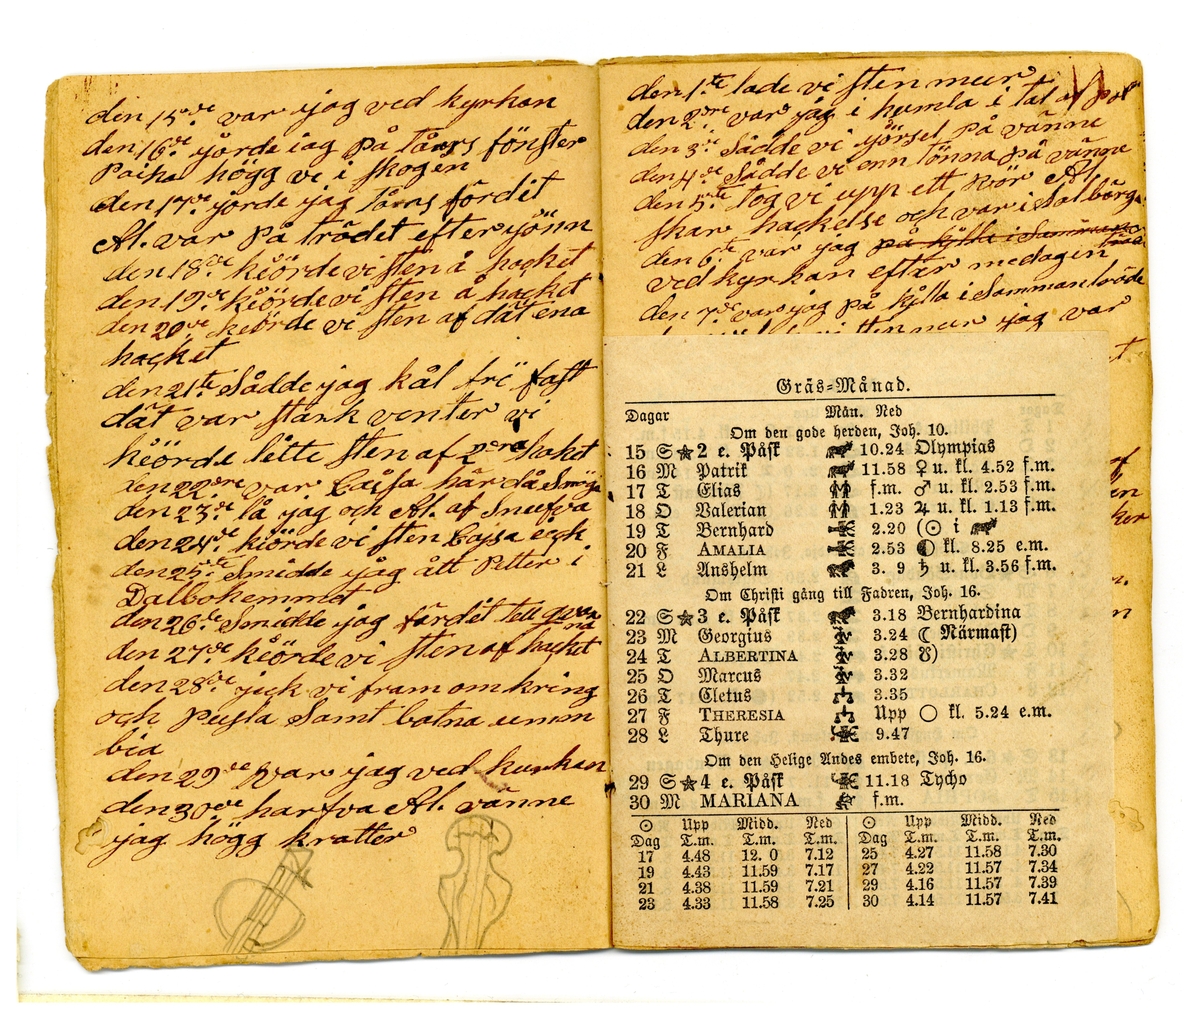 den 15de var jag ved kyrkan
den 16de. jörde iag på tångs fönster
Paika högg vi i skogen
den 17de. jörde jag tångs fördet
Al. var på trödet efter jönn
den 18de. kiörde vi sten å hacket
den 19de kiörde vi sten å hacket
den 20de. kiörde vi sten af dät ena
hacket
den 21te Sådde jag kål frö fast
dät var stark venter vi
kiörde lette sten af 2dra hacket
den 22dre var Cajsa här då
den 23de. lå jag och Al. af Snufva
den 24de. kiörde vi sten Cajsa
den 25te Smidde jag ått Petter i
Dalbohemmet
den 26te Smidde jag färdit tell
den 27de. kiörde vi sten af hacket
den 28de. jick vi fram om kring
och pusla Samt batna
bia
den 29de var jag ved kurkan
den 30de harfva Al. vänne
jag högg kratter
den 1ste lade vi sten mur
den 2dre var jag i humla i tal af
den 3de Sådde vi jörset på vänne
den 4de Sådde vi enn tönna på vänne
den 5te tog vi upp ett Rör Al.
skar hackelse och var i Salbärga
den 6te var jag på kjlla i Samman
ved kyrkan eftär medagen
den 7de var jag på kjlla i Sammanträde
vi sten mur jag var
Gräs-Månad.
Dagar Mån. Ned
Om den gode herden, Joh. 10.
15 S ★ 2 e. Påsk 10.24 Olympias
16 M Patrik 11.58 ♀ u. kl. 4.52 f.m.
17 T Elias f.m. ♂ u. kl. 2.53 f.m.
18 O Valerian 1.23 ♃ u. kl. 1.13 f.m.
19 T Bernhard 2.20 (☉ i
20 F AMALIA 2.53 kl. 8.25 e.m.
21 L Anshelm 3. 9 ♄ u. kl. 3.56 f.m.
Om Christi gång till Fadren, Joh. 16.
22 S ★ 3 e. Påsk 3.18 Bernhardina
23 M Georgius 3.24 ☾ Närmast)
24 T ALBERTINA 3.28 ☋)
25 O Marcus 3.32
26 T Cletus 3.35
27 F THERESIA Upp ○ kl. 5.24 e.m.
28 L Thure 9.47
Om den Helige Andes embete, Joh. 16.
29 S ★ 4 e. Påsk 11.18 Tycho
30 M MARIANA f.m.
☉ Upp Midd. Ned ☉ Upp Midd. Ned
Dag T.m. T.m. T.m. Dag T.m. T.m. T.m.
17 4.48 12. 0 7.12 25 4.27 11.58 7.30
19 4.43 11.59 7.17 27 4.22 11.57 7.34
21 4.38 11.59 7.21 29 4.16 11.57 7.39
23 4.33 11.58 7.25 30 4.14 11.57 7.41